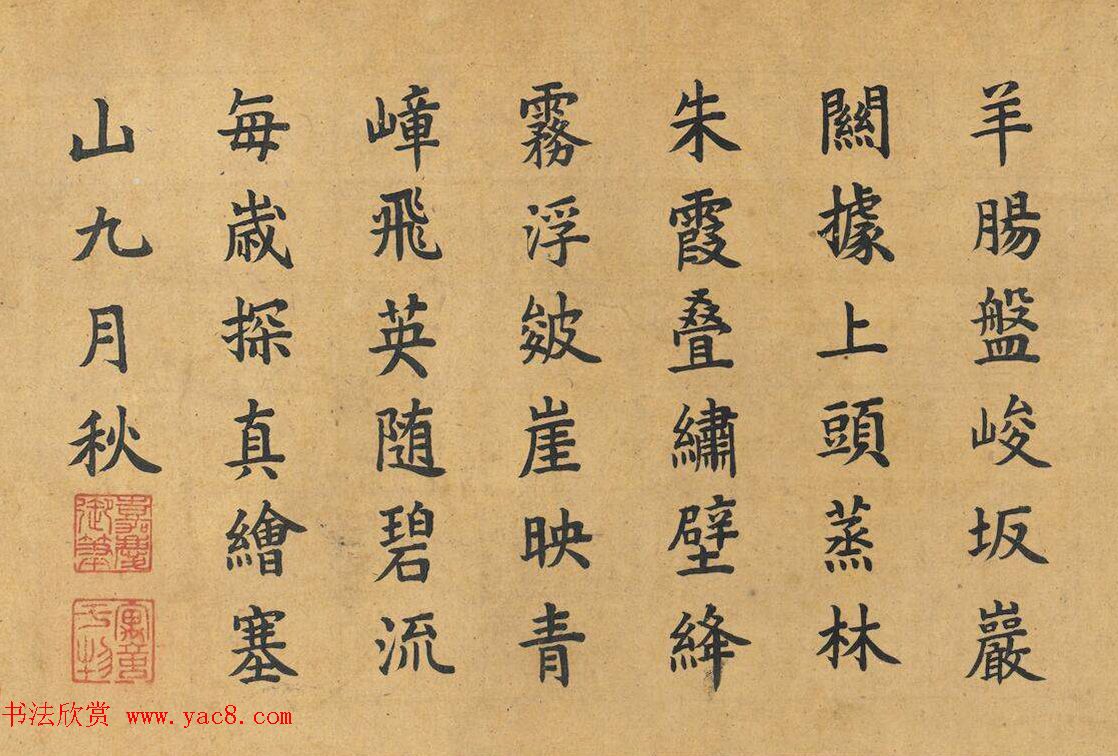 羊腸盤峻坂巖
關據上頭蒸林
朱霞叠繡壁絳
霧浮皴崖映青
嶂飛英随碧流
每歲探真繪塞
山九月秋
嘉慶
御筆
書法欣赏 www.yac8.com